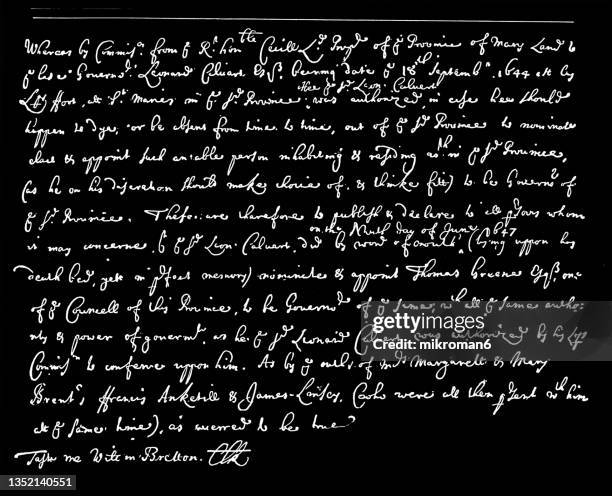 Whereas by Commisn from ye Rt honble Cecill Ld Propr of ye Province of Mary Land to
ye late Governor Leonard Calvert Esqr bearing date ye 18th Septembr 1644 att
fort, att St Maries in ye sd Province he ye sd Leon: Calvert was authorized in case hee should
happen to dye, or be absent from time to time, out of ye sd Province to nominate
elect & appoint such an able person inhabiting & residing within ye sd Province,
(as he in his discretion should make choice of, & thinke fitt) to be Governor of
ye sd Province. These are therefore to publish & declare to all psons whom
it may concerne yt ye sd Leon: Calvert did by word of mouth on the Ninth day of June 1647 (lying uppon his
death bed, yett in pfect memory) nominate & appoint Thomas Greene Esqr one
of ye Councell of this Province, to be Governor of ye same, with all ye same autho-
rity & power of governmt, as he ye sd Leonard Calvert was authorized by his Lps
Commisn to conferre uppon him. As by ye oaths of Mrs Margarett & Mary
Brent, ffrancis Anketill & James Linsey, (who were all then psent with him
att ye same time), as averred to be true
Teste me Willm Bretton. Clk
gettyimages
Credit: mikroman6
1352140551